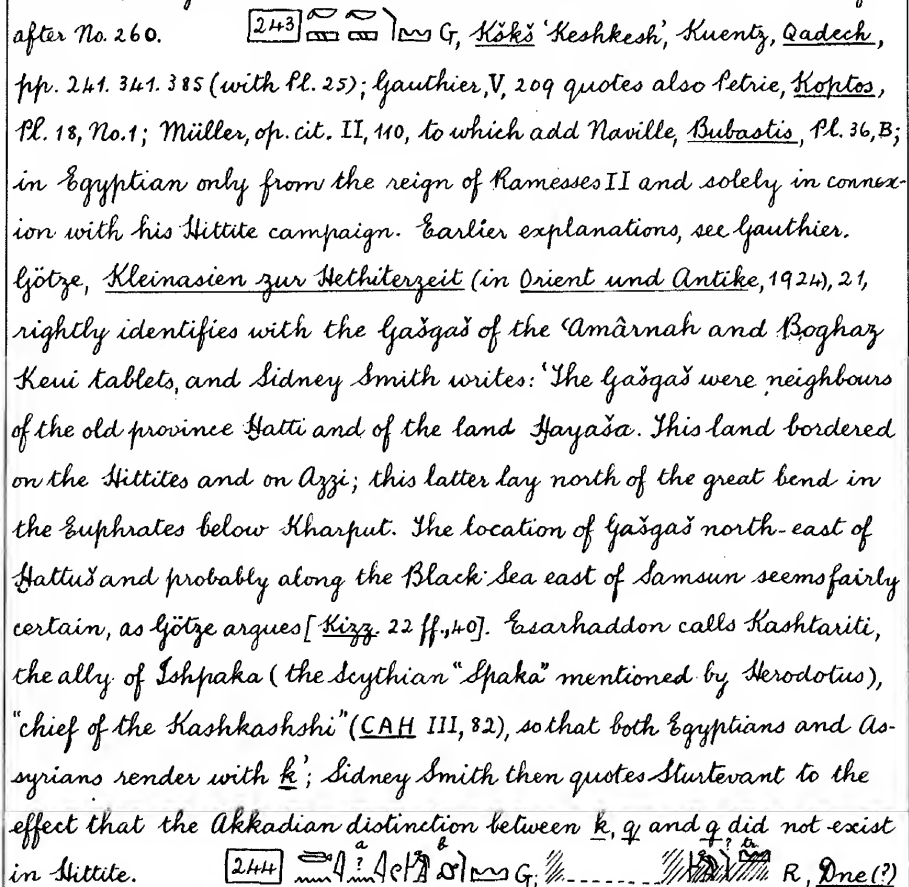 after No. 260. 243 G, Kškš ‘Keshkesh’, Kuentz, Qadech,
pp. 241. 341. 385 (with Pl. 25); Gauthier, V, 209 quotes also Petrie, Koptos,
Pl. 18, No. 1; Müller, op. cit. II, 110, to which add Naville, Bubastis, Pl. 36, B;
in Egyptian only from the reign of Ramesses II and solely in connex-
ion with his Hittite campaign. Earlier explanations, see Gauthier.
Götze, Kleinasien zur Hethiterzeit (in Orient und Antike, 1924), 21,
rightly identifies with the Gašgaš of the ‘Amârnah and Boghaz
Keui tablets, and Sidney Smith writes: ‘The Gašgaš were neighbours
of the old province Ḫatti and of the land Ḫayaša. This land bordered
on the Hittites and on Azzi; this latter lay north of the great bend in
the Euphrates below Kharput. The location of Gašgaš north-east of
Ḫattuš and probably along the Black Sea east of Samsun seems fairly
certain, as Götze argues [Kizz. 22 ff., 40]. Esarhaddon calls Kashtariti,
the ally of Ishpaka (the Scythian “Spaka” mentioned by Herodotus),
“chief of the Kashkashshi” (CAH III, 82), so that both Egyptians and As-
syrians render with k’; Sidney Smith then quotes Sturtevant to the
effect that the Akkadian distinction between k, g and q did not exist
in Hittite. 244 G; R, Dne(?)